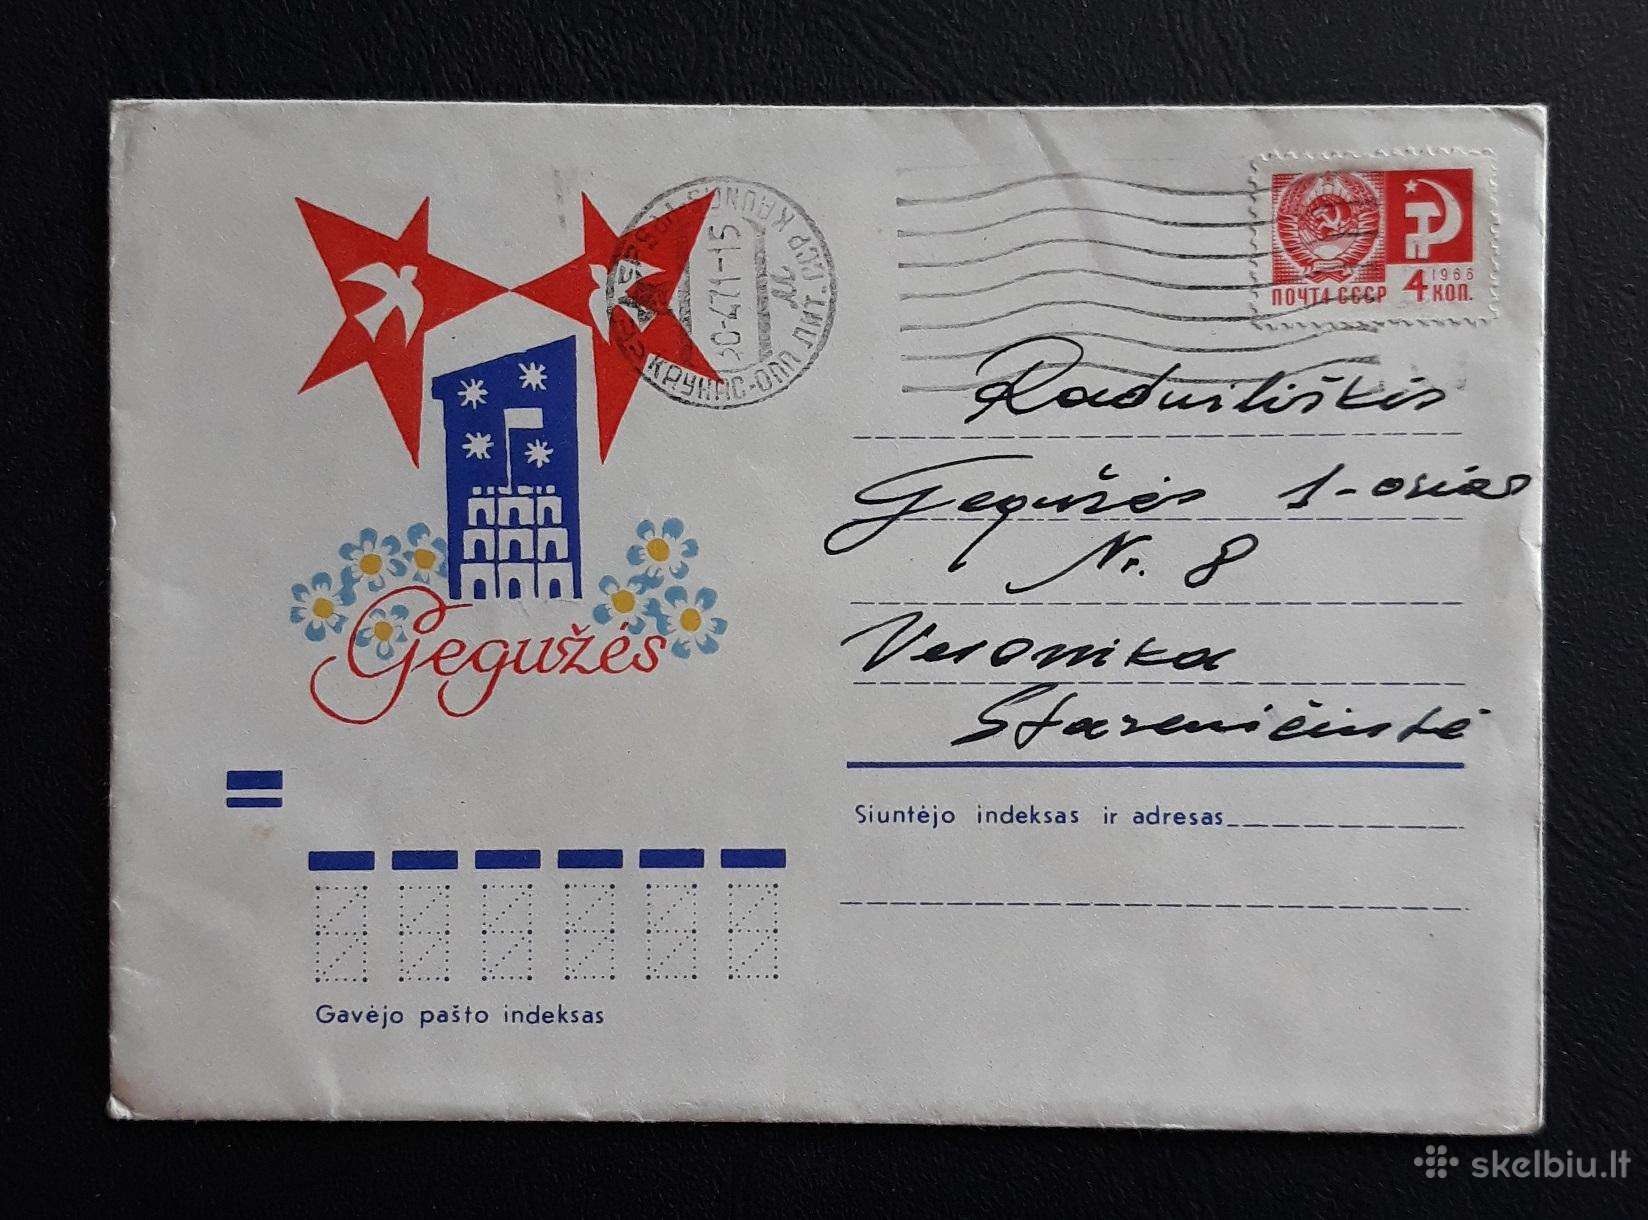 Gegužės
30-4.71-15
ПОЧТА СССР 4 КОП.
1966
Radviliškis
Gegužės 1-osios
Nr. 8
Veronika
Siuntėjo indeksas ir adresas
Gavėjo pašto indeksas
skelbiu.lt